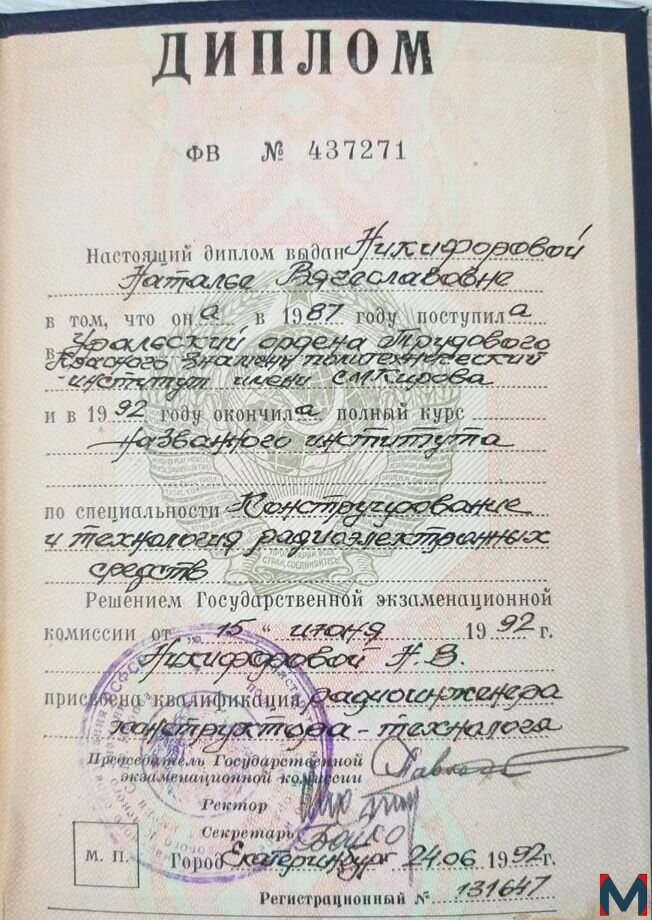 ДИПЛОМ
ФВ № 437271
Настоящий диплом выдан Никифоровой
Наталье Вячеславовне
в том, что он а в 1987 году поступил а
в Уральский ордена Трудового
Красного Знамени политехнический
институт имени С.М.Кирова
и в 1992 году окончил а полный курс
названного института
по специальности Конструирование
и технология радиоэлектронных
средств
Решением Государственной экзаменационной
комиссии от „15“ июня 1992 г.
Никифоровой Н.В.
присвоена квалификация радиоинженера
конструктора-технолога
Председатель Государственной
экзаменационной комиссии
Ректор
Секретарь
М. П.
Город Екатеринбург 24.06 1992 г.
Регистрационный № 131647
М